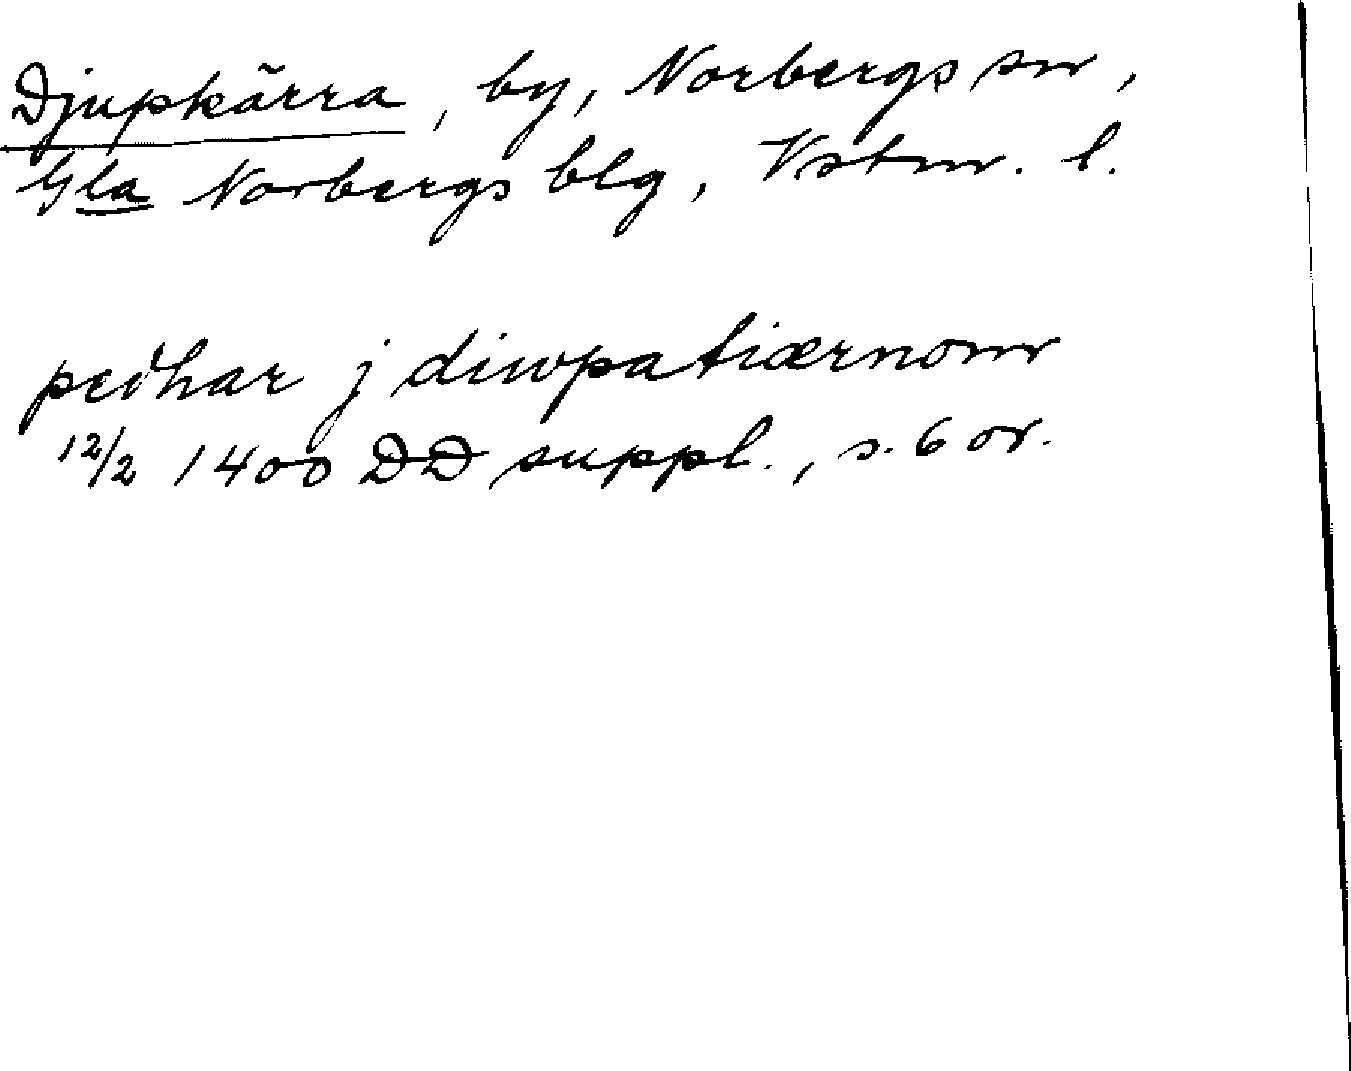 Djupkärra, by, Norbergs sn,
Gla Norbergs blg, Vstm. l.
pedhar j diwpatiærnom
12/2 1400 DD suppl., s. 6 or.